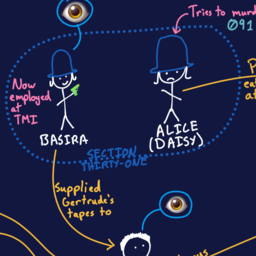 Tries to murd
091
Now
employed
at
TMI
BASIRA
ALICE
(DAISY)
SECTION
THIRTY-ONE
Supplied
Gertrude's
tapes to